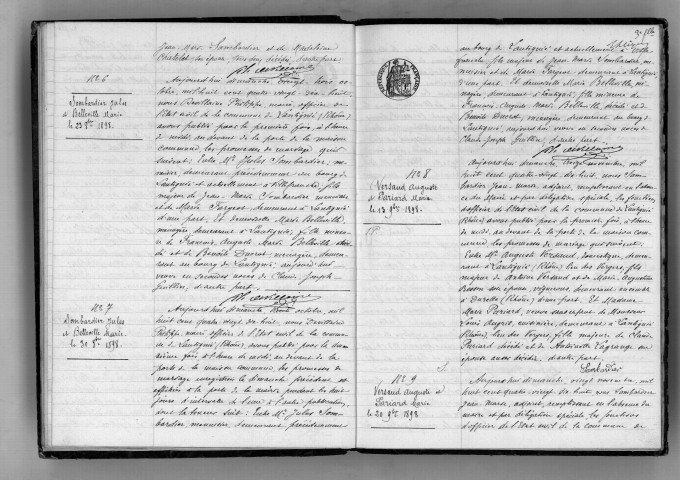 Jean Marie Lombardier et de Madeleine
N° 6
Lombardier Jules
et Belleville Marie
le 23 8bre 1898.
Aujourd'hui dimanche vingt trois oc-
tobre, mil huit cent quatre vingt dix huit,
nous Philippe maire officier de
l'Etat civil de la commune de Lantignié (Rhône)
avons publié pour la première fois, à l'heure
de midi, au devant de la porte de la maison
commune, les promesses de mariage qui
suivent: Entre Mr Jules Lombardier, me-
nuisier, demeurant précédemment au bourg de
Lantignié et actuellement à Villefranche, fils
majeur de Jean Marie Lombardier menuisier
et de Marie Sargent demeurant à Lantignié
d'une part, et demoiselle Marie Belleville,
ménagère demeurant à Lantignié, fille mineure
de François Auguste Marie Belleville décédé
et de Benoîte Ducrot, ménagère, demeu-
rant au bourg de Lantignié; aujourd'hui
veuve en secondes noces de Claude Joseph
Guillin, d'autre part.
N° 7
Lombardier Jules
et Belleville Marie.
le 30 8bre 1898.
Aujourd'hui dimanche trente octobre, mil
huit cent quatre vingt dix huit, nous
Philippe maire officier de l'Etat civil de la commu-
ne de Lantignié (Rhône), avons publié pour la deu-
xième fois, à l'heure de midi, au devant de la
porte de la maison commune, les promesses de
mariage enregistrées le dimanche précédent et
affichées à la porte de la mairie pendant les huit
jours d'intervalle de l'une à l'autre publication,
dont la teneur suit: Entre Mr Jules Lom-
bardier, menuisier, demeurant précédemment
au bourg de Lantignié et actuellement à Ville-
franche, fils majeur de Jean Marie Lombardier, me-
nuisier et de Marie Sargent, demeurant à Lantignié,
d'une part. Et demoiselle Marie Belleville, mé-
nagère, demeurant à Lantignié, fille mineure de
François Auguste Marie Belleville décédé et de
Benoîte Ducrot, ménagère, demeurant au bourg de
Lantignié, aujourd'hui veuve en secondes noces de
Claude Joseph Guillin, d'autre part.
N° 8
Versaud Auguste
et Pariard Marie
le 13 9bre 1898.
Aujourd'hui dimanche, treize novembre, mil
huit cent quatre vingt dix huit, nous Lom-
bardier Jean Marie, adjoint, remplissant en l'absen-
ce du Maire et par délégation spéciale, les fonctions
d'officier de l'Etat civil de la commune de Lantignié
(Rhône) avons publié pour la première fois, à l'heure
de midi, au devant de la porte de la maison com-
mune les promesses de mariage qui suivent:
Entre Mr Auguste Versaud, domestique, demeu-
rant à Lantignié (Rhône), lieu des Vergers, fils
majeur de Antoine Versaud et de Marie Augustine
son épouse, vignerons, demeurant ensemble
à Durette (Rhône) d'une part. Et Madame
Marie Pariard, veuve
Louis ménagère, demeurant à Lantignié
(Rhône), lieu des Vergers, fille majeure de Claude
Pariard décédé et de Antoinette Lagrange son
épouse aussi décédée, d'autre part.
Lombardier
N° 9
Versaud Auguste et
Pariard Marie
le 20 9bre 1898.
Aujourd'hui dimanche, vingt novembre, mil
huit cent quatre vingt dix huit nous Lombardier
Jean Marie, adjoint, remplissant en l'absence du
maire et par délégation spéciale, les fonctions
d'officier de l'Etat civil de la commune de